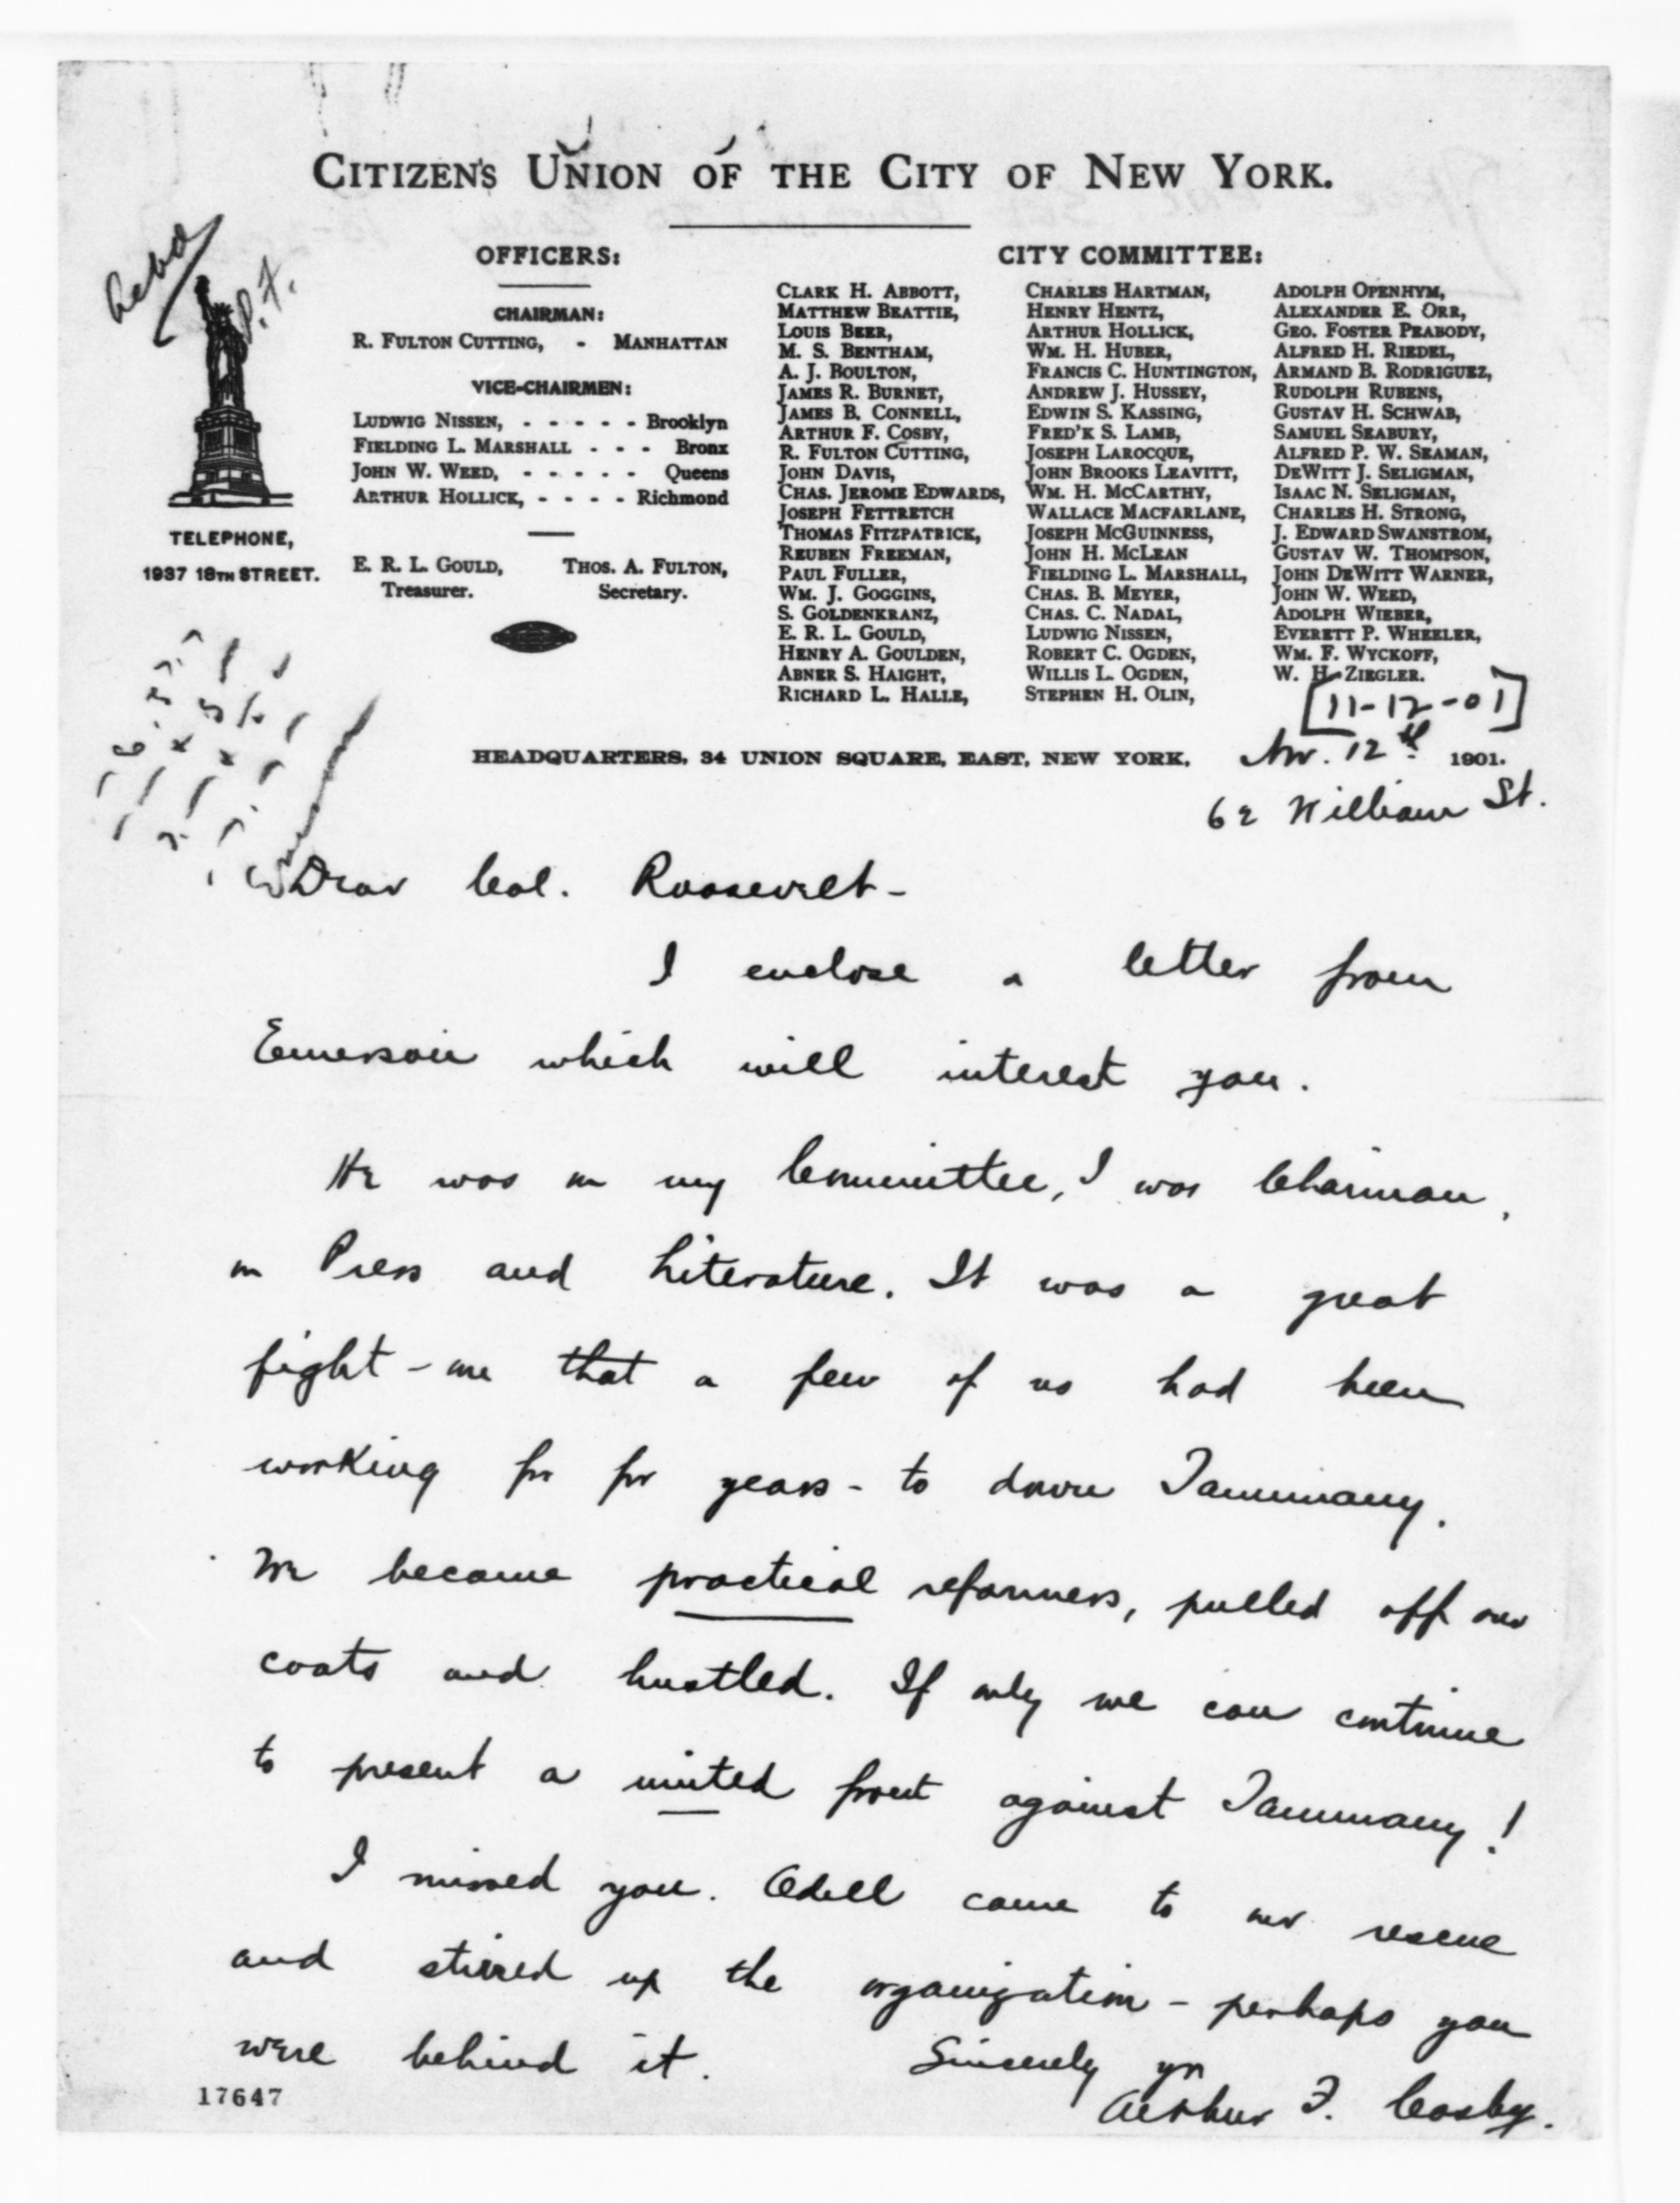 CITIZEN'S UNION OF THE CITY OF NEW YORK.
Ackd
P.F.
TELEPHONE,
1937 18TH STREET.
OFFICERS:
CHAIRMAN:
R. FULTON CUTTING, - MANHATTAN
VICE-CHAIRMEN:
LUDWIG NISSEN, - - - - - Brooklyn
FIELDING L. MARSHALL - - - Bronx
JOHN W. WEED, - - - - - Queens
ARTHUR HOLLICK, - - - - Richmond
E. R. L. GOULD, THOS. A. FULTON,
Treasurer. Secretary.
CITY COMMITTEE:
CLARK H. ABBOTT,
MATTHEW BEATTIE,
LOUIS BEER,
M. S. BENTHAM,
A. J. BOULTON,
JAMES R. BURNET,
JAMES B. CONNELL,
ARTHUR F. COSBY,
R. FULTON CUTTING,
JOHN DAVIS,
CHAS. JEROME EDWARDS,
JOSEPH FETTRETCH
THOMAS FITZPATRICK,
REUBEN FREEMAN,
PAUL FULLER,
WM. J. GOGGINS,
S. GOLDENKRANZ,
E. R. L. GOULD,
HENRY A. GOULDEN,
ABNER S. HAIGHT,
RICHARD L. HALLE,
CHARLES HARTMAN,
HENRY HENTZ,
ARTHUR HOLLICK,
WM. H. HUBER,
FRANCIS C. HUNTINGTON,
ANDREW J. HUSSEY,
EDWIN S. KASSING,
FRED'K S. LAMB,
JOSEPH LAROCQUE,
JOHN BROOKS LEAVITT,
WM. H. MCCARTHY,
WALLACE MACFARLANE,
JOSEPH MCGUINNESS,
JOHN H. MCLEAN
FIELDING L. MARSHALL,
CHAS. B. MEYER,
CHAS. C. NADAL,
LUDWIG NISSEN,
ROBERT C. OGDEN,
WILLIS L. OGDEN,
STEPHEN H. OLIN,
ADOLPH OPENHYM,
ALEXANDER E. ORR,
GEO. FOSTER PEABODY,
ALFRED H. RIEDEL,
ARMAND B. RODRIGUEZ,
RUDOLPH RUBENS,
GUSTAV H. SCHWAB,
SAMUEL SEABURY,
ALFRED P. W. SEAMAN,
DEWITT J. SELIGMAN,
ISAAC N. SELIGMAN,
CHARLES H. STRONG,
J. EDWARD SWANSTROM,
GUSTAV W. THOMPSON,
JOHN DEWITT WARNER,
JOHN W. WEED,
ADOLPH WIEBER,
EVERETT P. WHEELER,
WM. F. WYCKOFF,
W. H. ZIEGLER.
[11-12-01]
HEADQUARTERS, 34 UNION SQUARE, EAST, NEW YORK, Nov. 12th 1901.
62 William St.
Dear Col. Roosevelt-
I enclose a letter from
Emerson which will interest you.
He was on my Committee, I was Chairman,
on Press and Literature. It was a great
fight - one that a few of us had been
working for for years - to down Tammany.
We became practical reformers, pulled off our
coats and hustled. If only we can continue
to present a united front against Tammany!
I missed you. Odell came to our rescue
and stirred up the organization - perhaps you
were behind it. Sincerely yrs
Arthur F. Cosby.
17647